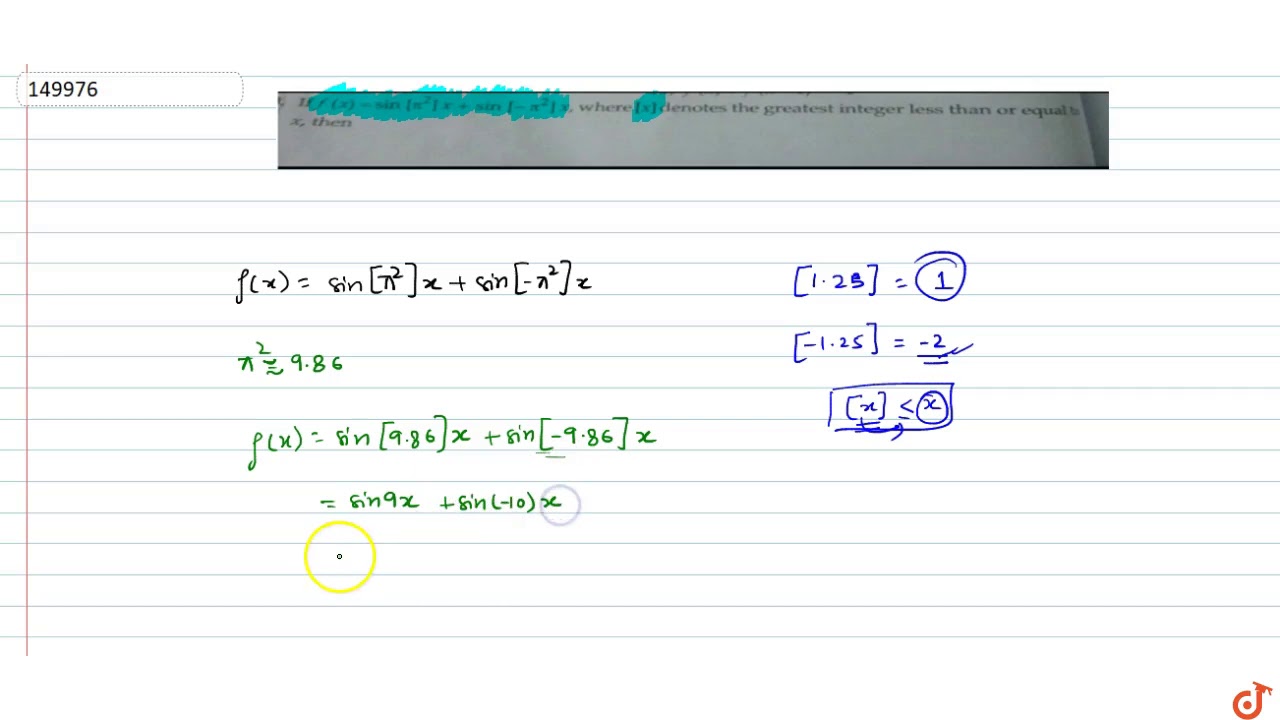 149976
If f (x) = sin [π²] x + sin [– π²] x, where [x] denotes the greatest integer less than or equal to
x, then
f(x) = sin[π²]x + sin[-π²]x
[1.25] = 1
π² ≈ 9.86
[-1.25] = -2
[x] ≤ x
f(x) = sin[9.86]x + sin[-9.86]x
= sin9x + sin(-10)x
d